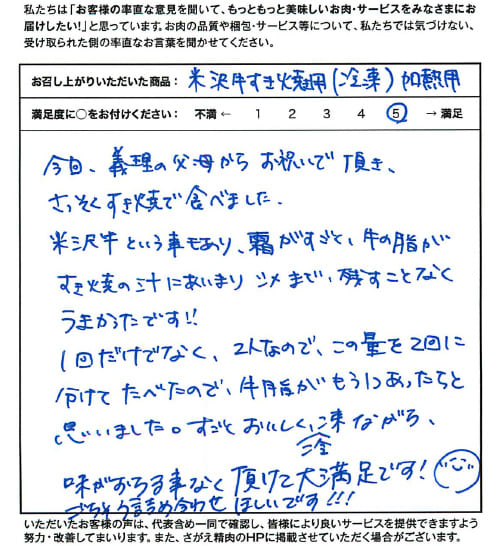 私たちは「お客様の率直な意見を聞いて、もっともっと美味しいお肉・サービスをみなさまにお
届けしたい!」と思っています。お肉の品質や梱包・サービス等について、私たちでは気づけない、
受け取られた側の率直なお言葉を聞かせてください。
お召し上がりいただいた商品： 米沢牛すき焼用(冷凍)加熱用
満足度に○をお付けください： 不満 ← 1 2 3 4 5 → 満足
今回、義理の父母からお祝いで頂き、
さっそくすき焼で食べました。
米沢牛という事もあり、霜がすごく、牛の脂が
すき焼の汁にあいまり 〆まで、残すことなく
うまかったです!!
1回だけでなく、2人なので、この量を2回に
分けてたべたので、牛脂がもう1つあったらと
思いました。すごくおいしく、凍ながら、
味がおちる事なく頂けて大満足です!
ごちそう詰め合わせ ほしいです!!!
いただいたお客様の声は、代表含め一同で確認し、皆様により良いサービスを提供できますよう
努力・改善してまいります。また、さがえ精肉のHPに掲載させていただく場合がございます。